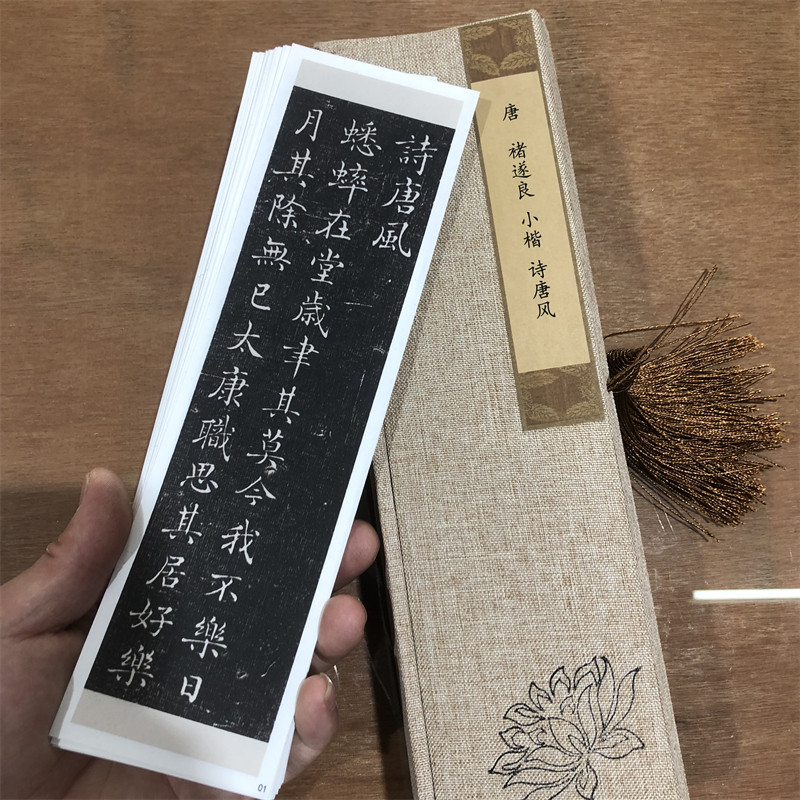 詩唐風
蟋蟀在堂歲聿其莫今我不樂日
月其除無已太康職思其居好樂
01
唐 褚遂良 小楷 诗唐风